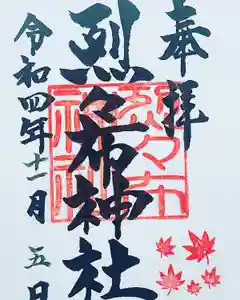 奉拝
烈々布神社
令和四年十一月五日
烈々布神社